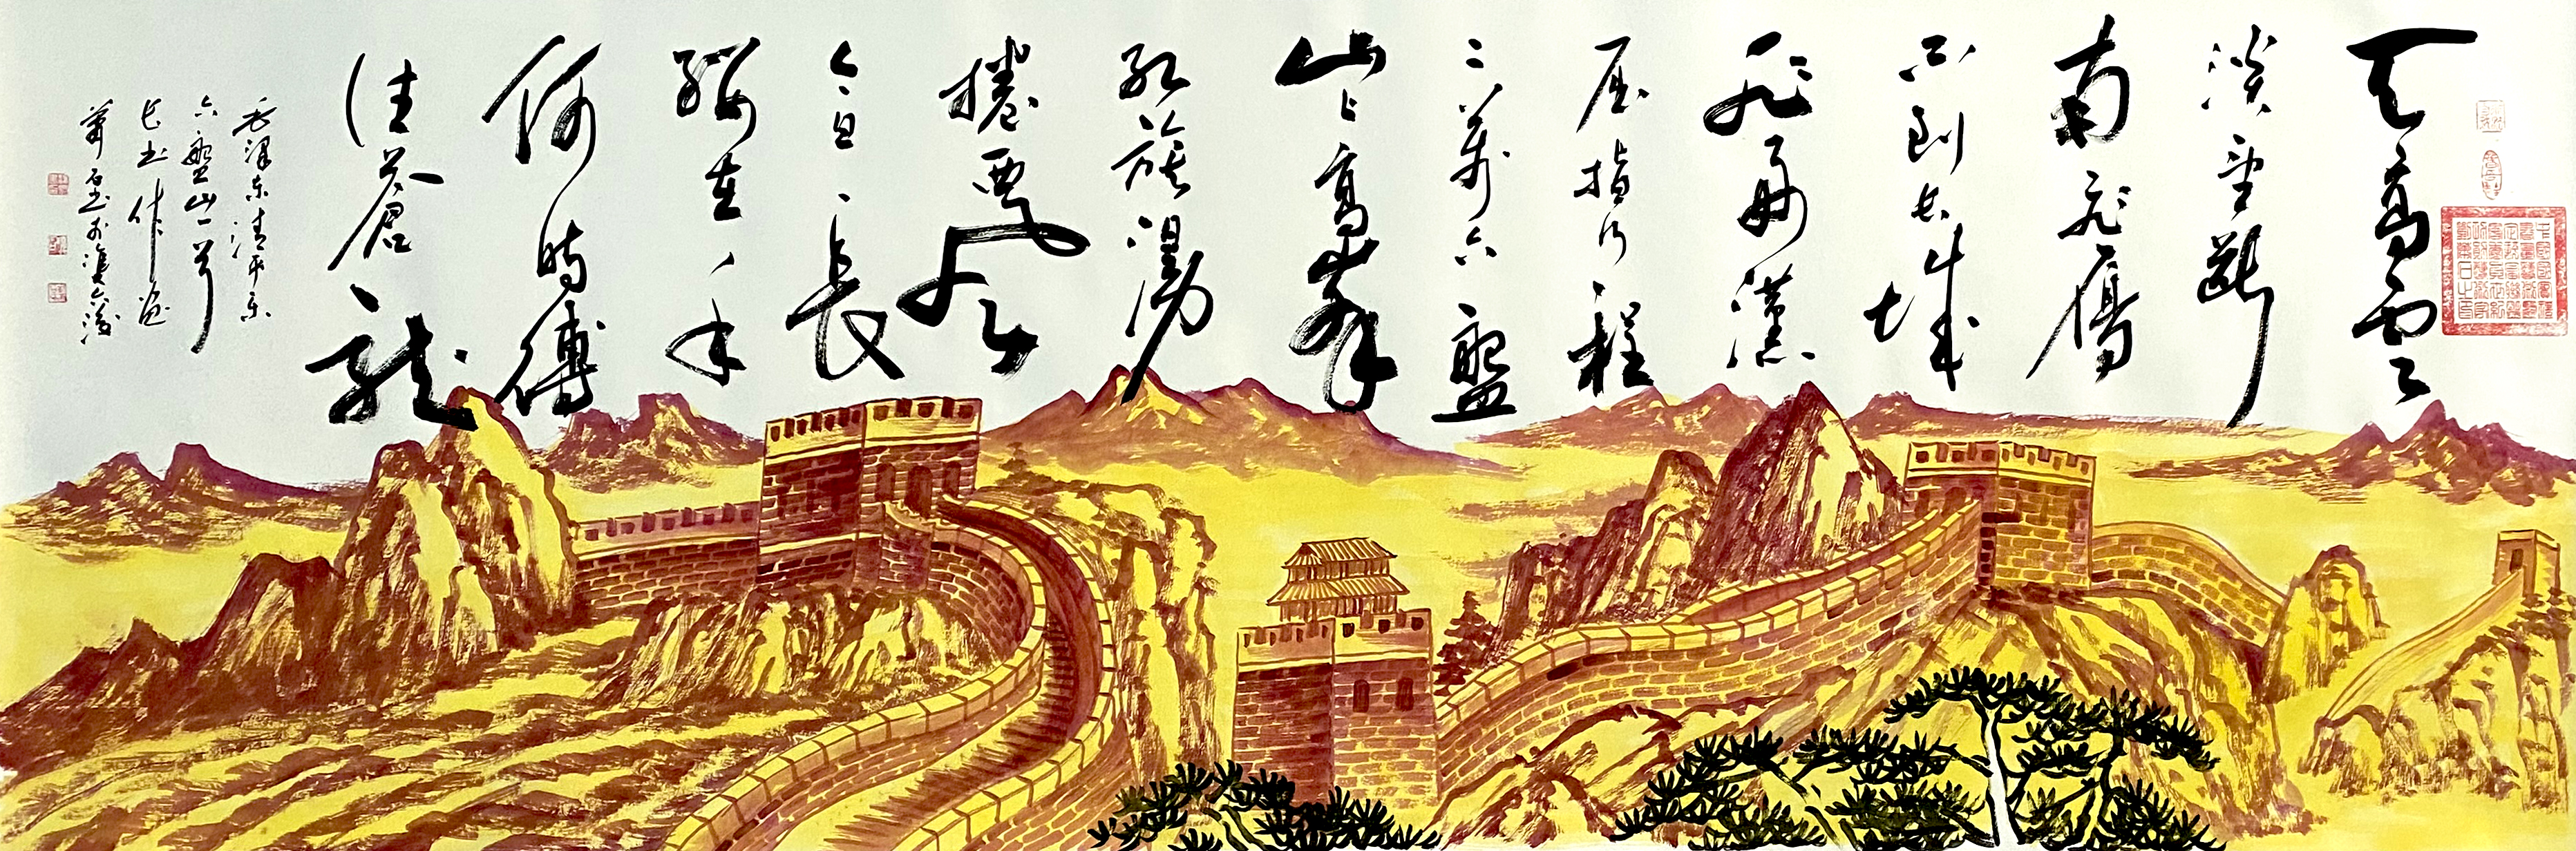 天高雲
淡望斷
南飛鴈
不到長城
非好漢
屈指行程
二萬六盤
山上高峰
紅旗漫
捲西風
今日長
纓在手
何時縛
住蒼龍
毛澤東清平樂
六盤山一首